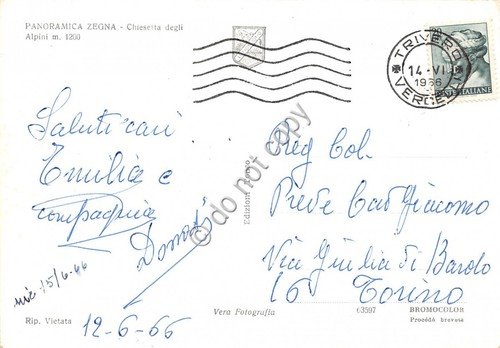 PANORAMICA ZEGNA - Chiesetta degli
Alpini m. 1200
TRIVERO
14-VI
1966
VERCELLI
POSTE ITALIANE
Saluti cari
Emilia e
compagnia
12-6-66
ric. 15/6-66
Rip. Vietata
Edizioni
Vera Fotografia
63597
BROMOCOLOR
Procédé breveté
Preg Col.
Prete Cav Giacomo
Via Giulia di Barolo
16 Torino
do not copy